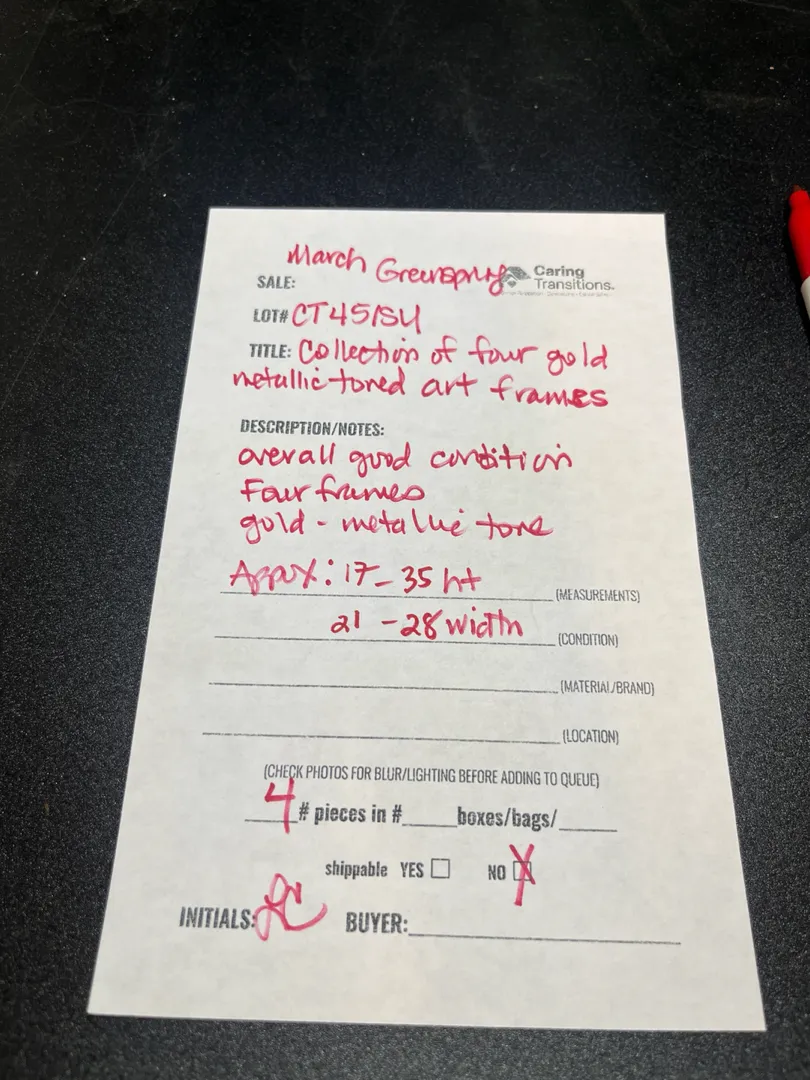 March Greenspring
SALE:
Caring
Transitions.
LOT# CT451SU
TITLE: Collection of four gold
metallic toned art frames
DESCRIPTION/NOTES:
overall good condition
Four frames
gold - metallic tone
Appox: 17-35 ht (MEASUREMENTS)
21 -28 width (CONDITION)
(MATERIAL/BRAND)
(LOCATION)
(CHECK PHOTOS FOR BLUR/LIGHTING BEFORE ADDING TO QUEUE)
4 # pieces in #____boxes/bags/____
shippable YES ☐ NO ☒
INITIALS: LC BUYER: